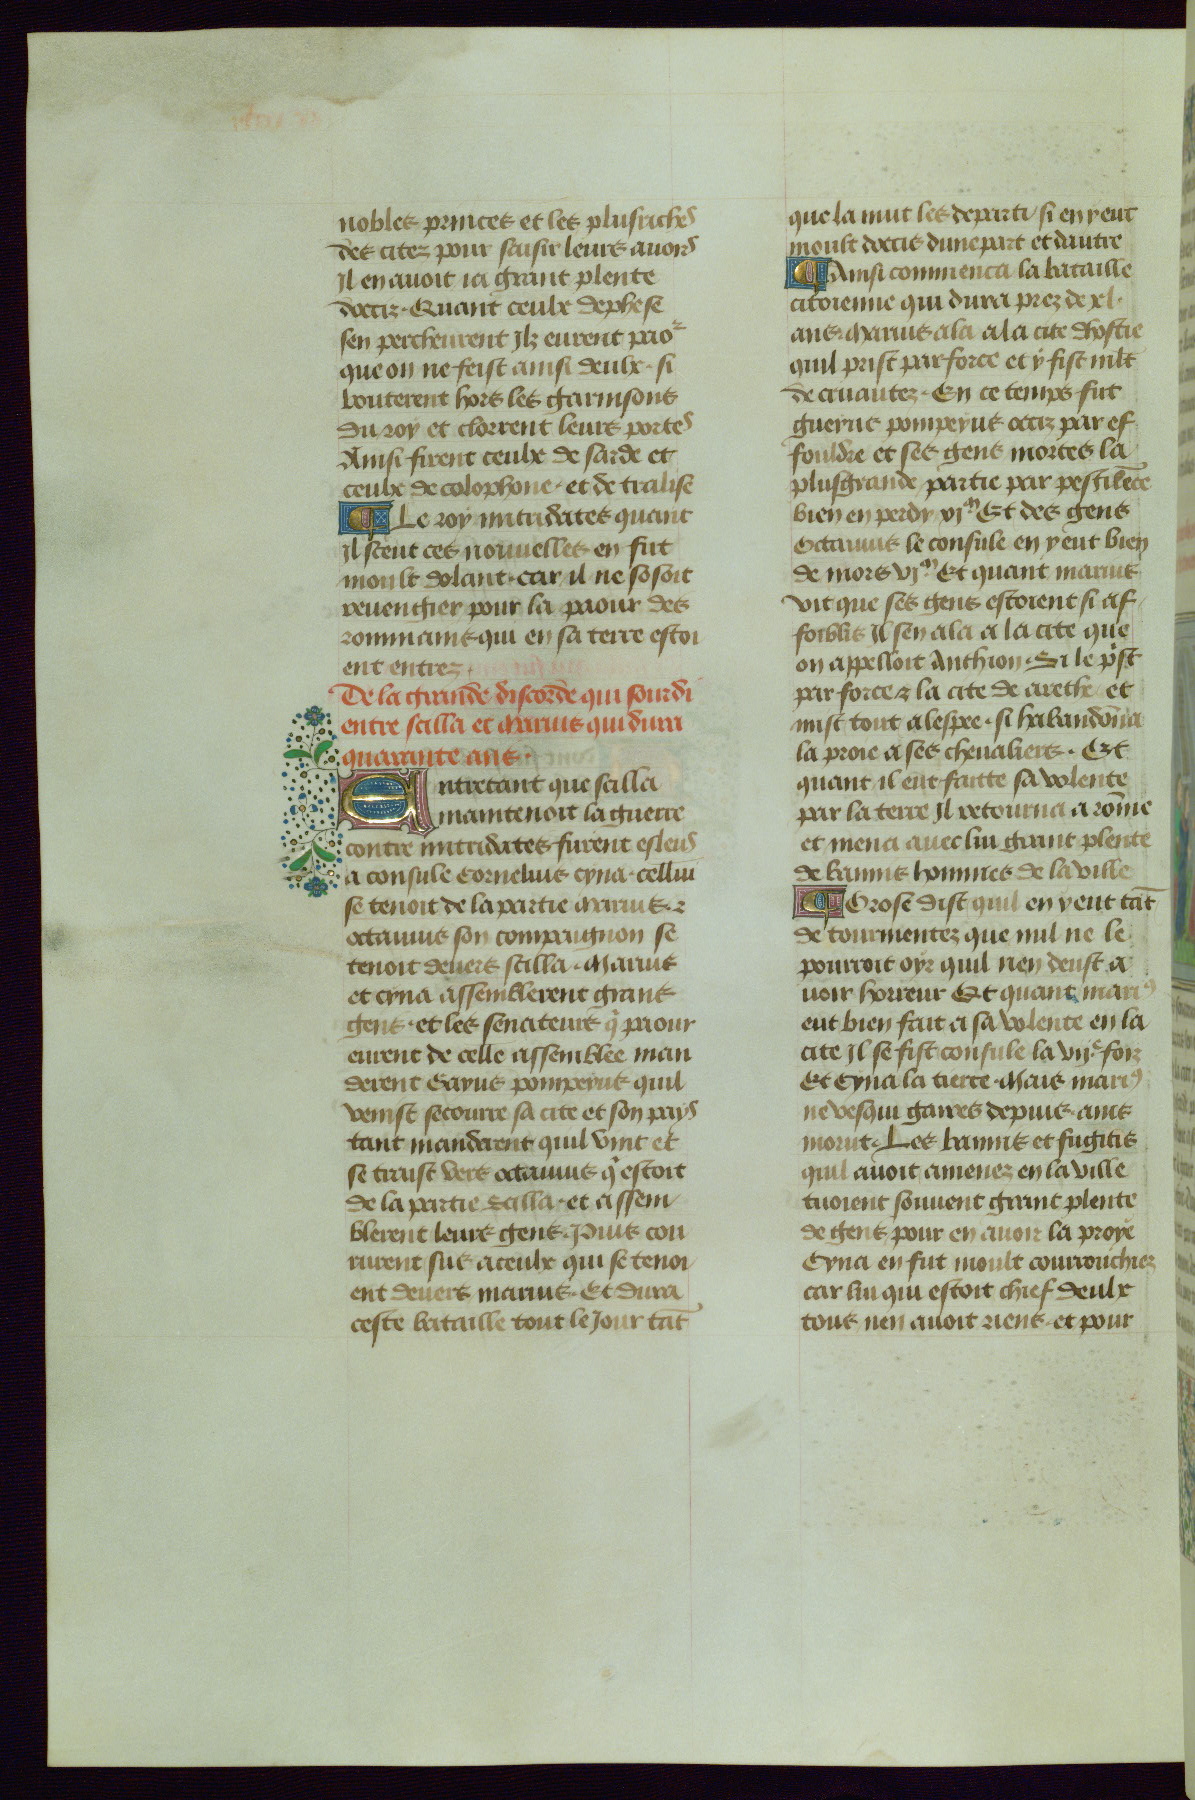 nobles princes et les plusriches
des citez pour saisir leurs avoirs
Il en avoit ia grant plente
docciz. Quant ceulx dephese
sen percheurent Ilz eurent paor
que on ne feist ainsi deulx. si
bouterent hors les garnisons
du roy et clorrent leurs portes
Ainsi firent ceulx de sarde et
ceulx de colophone. et de tralise
Le roy mitridates quant
il sceut ces nouvelles en fut
moult dolant. car il ne sosoit
revengier pour la paour des
rommains qui en sa terre estoi
ent entrez.
De la grande discorde qui sourdi
entre scilla et Marius qui dura
quarante ans.
Entretant que scilla
maintenoit la guerre
contre mitridates furent esleus
a consule Cornelius cyna. cellui
se tenoit de la partie Marius. ⁊
octavius son compaignon se
tenoit devers scilla. Marius
et cyna assemblerent grans
gens. et les senateurs q̇ paour
eurent de celle assemblee man
derent Gayus pompeyus quil
venist secourre sa cite et son pays
tant manderent quil vint et
se traist vers octavius q̇ estoit
de la partie Scilla. et assem
blerent leurs gens. Puis cou
rurent sus aceulx qui se tenoi
ent devers marius. Et dura
ceste bataille tout le Jour tāt
que la nuit les departi. si en y eut
moult doccis dunepart et dautre
Ainsi commenca la bataille
citoienne qui dura prez de xl.
ans. Marius ala a la cite dhostie
quil prist par force et y fist mlt
de cruautez. En ce temps fut
gueyus pompeyus occiz par ef
fouldre et ses gens mortes la
plusgrande partie par pestilēce
bien en perdy xjᵐ Et des gens
Octavius le consule en y eut bien
de mors vjᵐ Et quant marius
vit que ses gens estoient si af
foiblis Il sen ala a la cite que
on appelloit Anthion. Si le pr̄st
par force ⁊ la cite de arethe et
mist tout a lespee. si habandōna
la proie a ses chevaliers. Et
quant il eut faitte sa volente
par la terre Il retourna a rōme
et mena avec lui grant plente
de bannis hommes de la ville
Orose dist quil en y eut tāt
de tourmentez que nul ne le
pourroit oyr quil nen deust a
voir horreur Et quant mariꝰ
eut bien fait a sa volente en la
cite Il se fist consule la vijᵉ foiz
Et Cyna la tierce. Mais mariꝰ
ne vesqui gaires depuis. ains
morut. Les bannis et fugitis
quil avoit amenez en la ville
tuoient souvent grant plente
de gens pour en avoir la proye
Cyna en fut moult courrouchiez
car lui qui estoit chief deulx
tous nen avoit riens. et pour